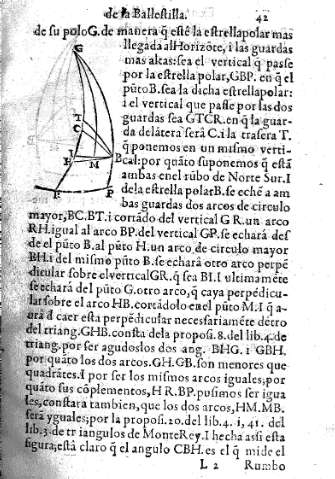 de la Ballestilla.
42
de su polo G. de manera q̃ esté la estrella polar mas
llegada al Horizōte, i las guardas
mas altas: sea el vertical q̃ passe
por la estrella polar, GBP. en q̃ el
pũto B. sea la dicha estrella polar:
i el vertical que passe por las dos
guardas sea GTCR. en q̃ la guar-
da delãtera será C. i la trasera T.
q̃ ponemos en un mismo verti-
cal: por quãto suponemos q̃ estã
ambas en el rũbo de Norte Sur. I
de la estrella polar B. se eché a am
bas guardas dos arcos de circulo
mayor, BC. BT. i cortado del vertical GR. un arco
RH. igual al arco BP. del vertical GP. se echará desde
de el pũto B. al pũto H. un arco de circulo mayor
BH. i del mismo pũto B. se echará otro arco perpē
dicular sobre el vertical GR. q̃ sea BI. I ultimamēte
se echará del pũto G. otro arco, q̃ caya perpēdicu-
lar sobre el arco HB. cortãdolo en el pũto M. I q̃ a-
urá d̃ caer esta perpēdicular necessariamēte dētro
del triang. GHB. consta de la proposi. 8. del lib. 4. de
triang. por ser agudos los dos ang. BHG. i GBH.
por quãto los dos arcos. GH. GB. son menores que
quadrãtes. I por ser los mismos arcos iguales; por
quãto sus cõplementos, HR. BP. pusimos ser igua
les, constara tambien, que los dos arcos, HM. MB.
será yguales; por la proposi. 20. del lib. 4. i, 41. del
lib. 3. de triangulos de Monte Rey. I hecha assi esta
figura, está claro q̃ el angulo CBH. es el q̃ mide el
L 2
Rumbo
G
T
C
I
H
M
B
P